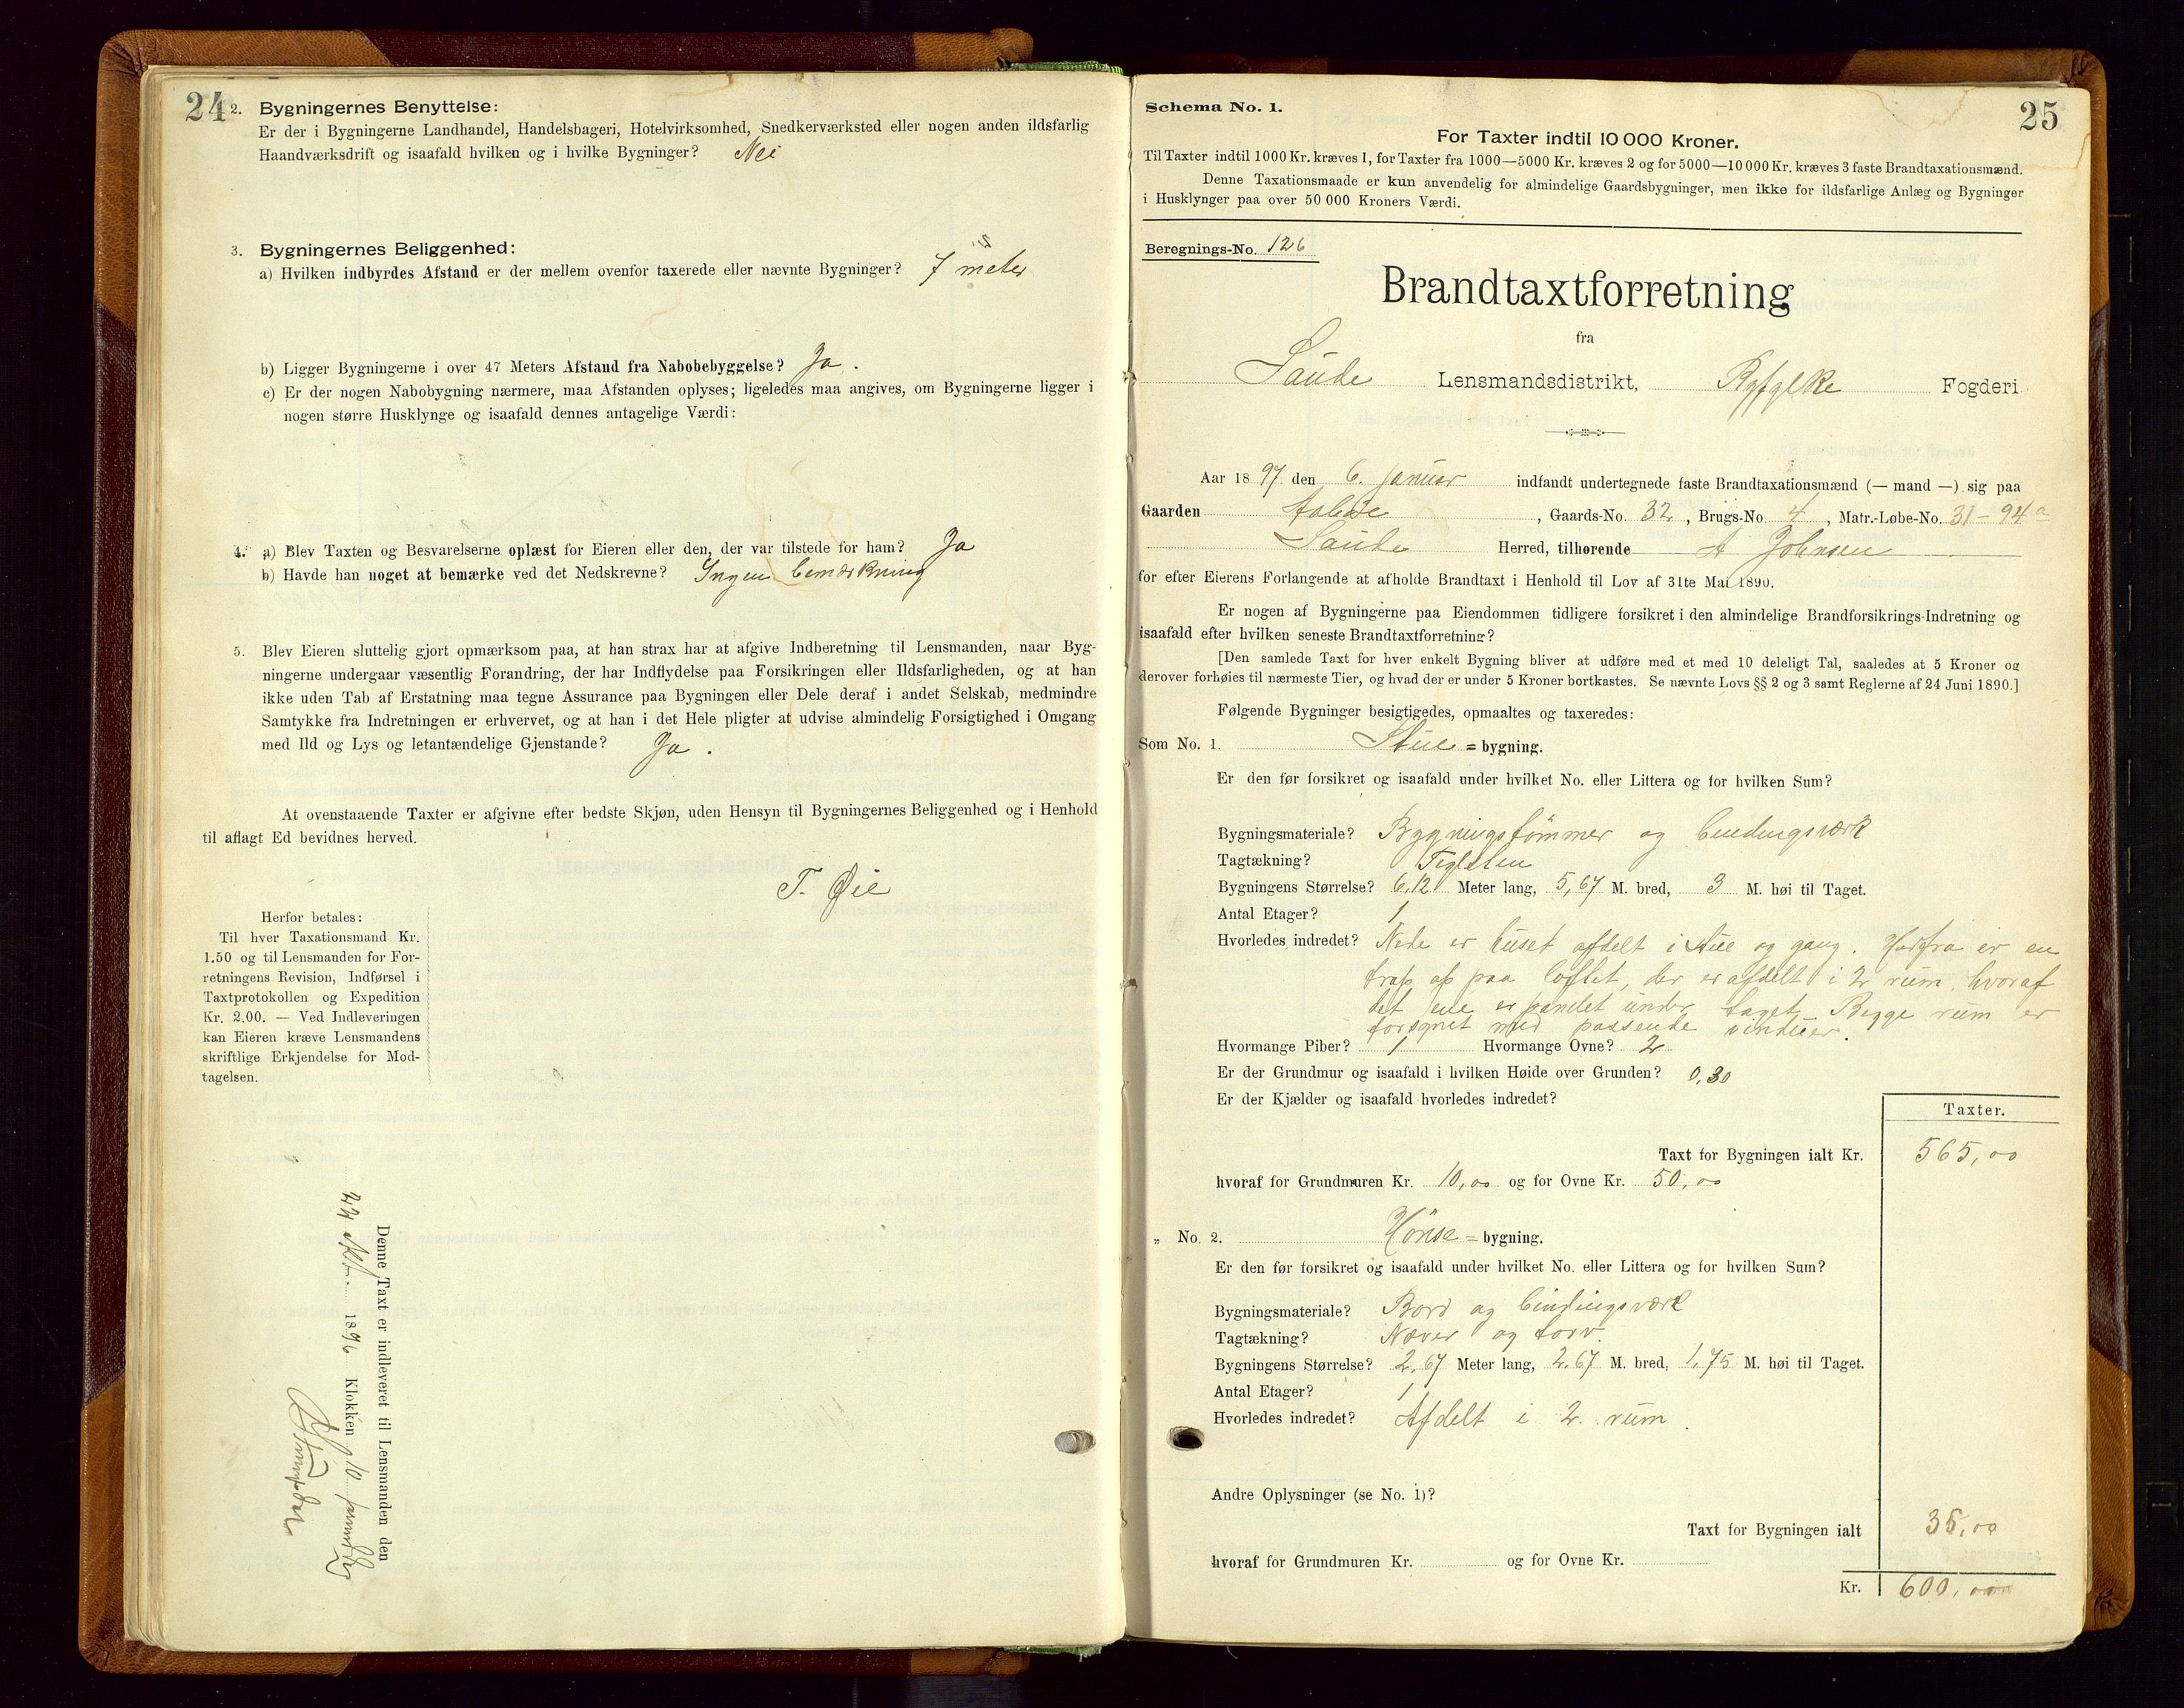 24
2. Bygningernes Benyttelse:
Er der i Bygningerne Landhandel, Handelsbageri, Hotelvirksomhed, Snedkerværksted eller nogen anden ildsfarlig
Haandværksdrift og isaafald hvilken og i hvilke Bygninger? Nei
3. Bygningernes Beliggenhed:
a) Hvilken indbyrdes Afstand er der mellem ovenfor taxerede eller nævnte Bygninger? 7 meter
b) Ligger Bygningerne i over 47 Meters Afstand fra Nabobebyggelse? Ja.
c) Er der nogen Nabobygning nærmere, maa Afstanden oplyses; ligeledes maa angives, om Bygningerne ligger i
nogen større Husklynge og isaafald dennes antagelige Værdi:
4. a) Blev Taxten og Besvarelserne oplæst for Eieren eller den, der var tilstede for ham? Ja
b) Havde han noget at bemærke ved det Nedskrevne? Ingen bemærkning
5. Blev Eieren sluttelig gjort opmærksom paa, at han strax har at afgive Indberetning til Lensmanden, naar Byg-
ningerne undergaar væsentlig Forandring, der har Indflydelse paa Forsikringen eller Ildsfarligheden, og at han
ikke uden Tab af Erstatning maa tegne Assurance paa Bygningen eller Dele deraf i andet Selskab, medmindre
Samtykke fra Indretningen er erhvervet, og at han i det Hele pligter at udvise almindelig Forsigtighed i Omgang
med Ild og Lys og letantændelige Gjenstande? Ja.
At ovenstaaende Taxter er afgivne efter bedste Skjøn, uden Hensyn til Bygningernes Beliggenhed og i Henhold
til aflagt Ed bevidnes herved.
T. Øie
Herfor betales:
Til hver Taxationsmand Kr.
1.50 og til Lensmanden for For-
retningens Revision, Indførsel i
Taxtprotokollen og Expedition
Kr. 2.00. — Ved Indleveringen
kan Eieren kræve Lensmandens
skriftlige Erkjendelse for Mod-
tagelsen.
Denne Taxt er indleveret til Lensmanden den
22 1896 Klokken 10 formiddag
25
Schema No. 1.
For Taxter indtil 10 000 Kroner.
Til Taxter indtil 1000 Kr. kræves 1, for Taxter fra 1000—5000 Kr. kræves 2 og for 5000—10 000 Kr. kræves 3 faste Brandtaxationsmænd.
Denne Taxationsmaade er kun anvendelig for almindelige Gaardsbygninger, men ikke for ildsfarlige Anlæg og Bygninger
i Husklynger paa over 50 000 Kroners Værdi.
Beregnings-No. 126
Brandtaxtforretning
fra
Saude Lensmandsdistrikt, Ryfylke Fogderi
Aar 1897 den 6. Januar indfandt undertegnede faste Brandtaxationsmænd (— mand —) sig paa
Gaarden , Gaards-No. 32, Brugs-No. 4, Matr.-Løbe-No. 31 – 94a
Saude Herred, tilhørende A Johnsen
for efter Eierens Forlangende at afholde Brandtaxt i Henhold til Lov af 31te Mai 1890.
Er nogen af Bygningerne paa Eiendommen tidligere forsikret i den almindelige Brandforsikrings-Indretning og
isaafald efter hvilken seneste Brandtaxtforretning?
[Den samlede Taxt for hver enkelt Bygning bliver at udføre med et med 10 deleligt Tal, saaledes at 5 Kroner og
derover forhøies til nærmeste Tier, og hvad der er under 5 Kroner bortkastes. Se nævnte Lovs §§ 2 og 3 samt Reglerne af 24 Juni 1890.]
Følgende Bygninger besigtigedes, opmaaltes og taxeredes:
Som No. 1. Stue = bygning.
Er den før forsikret og isaafald under hvilket No. eller Littera og for hvilken Sum?
Bygningsmateriale? Bygningstømmer og bindingsværk
Tagtækning? Teglsten
Bygningens Størrelse? 6,12 Meter lang, 5,67 M. bred, 3 M. høi til Taget.
Antal Etager? 1
Hvorledes indredet? Nede er huset afdelt i Stue og gang. Herfra er en
trap op paa loftet, der er afdelt i 2 rum, hvoraf
det ene er pandet under taget. Begge rum er
forsynet med passende vinduer.
Hvormange Piber? 1 Hvormange Ovne? 2
Er der Grundmur og isaafald i hvilken Høide over Grunden? 0,30
Er der Kjælder og isaafald hvorledes indredet?
Taxter.
Taxt for Bygningen ialt Kr. 565,00
hvoraf for Grundmuren Kr. 10,00 og for Ovne Kr. 50,00
„ No. 2. Hønse = bygning.
Er den før forsikret og isaafald under hvilket No. eller Littera og for hvilken Sum?
Bygningsmateriale? Bord og bindingsværk
Tagtækning? Næver og torv.
Bygningens Størrelse? 2,67 Meter lang, 2,67 M. bred, 1,75 M. høi til Taget.
Antal Etager? 1
Hvorledes indredet? Afdelt i 2 rum.
Andre Oplysninger (se No. 1)?
Taxt for Bygningen ialt 35,00
hvoraf for Grundmuren Kr. og for Ovne Kr.
Kr. 600,00